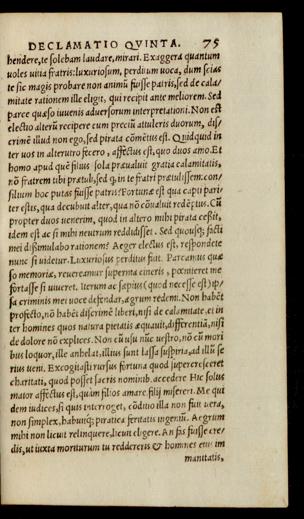 DECLAMATIO QVINTA. 75
hendere, te solebam laudare, mirari. Exaggera quantum
uoles uitia fratris: luxuriosum, perditum uoca, dum scias
te sic magis probare non animũ fuisse patris, sed de cala/
mitate rationem ille eligit, qui recipit ante meliorem. Sed
parce quæso iuuenis aduersorum interpretationi. Non est
electio alterũ recipere cum preciũ attuleris duorum, dis/
crimē illud non ego, sed pirata cōmētus est. Quidquid in
ter uos in alterutro fecero, affectus est, quo duos amo. Et
homo apud quē filius sola præualuit gratia calamitatis,
nō fratrem tibi prætuli, sed in te fratri prætulissem. con/
silium hoc putas fuisse patris? Fortunæ est qua capti pari/
ter estis, qua decubuit alter, qua nō cōualuit redēptus. Cũ
propter duos uenerim, quod in altero mihi pirata cessit,
idem est ac si mihi neutrum reddidisset. Sed quousq; facti
mei dissimulabo rationem? Aeger electus est, respondete
nunc si uidetur. Luxuriosus perditus fuit. Parcamus quæ
so memoriæ, reuereamur suprema cineris, pœniteret me
fortasse si uiueret. Iterum ac sæpius (quod necesse est) ip/
sa criminis mei uoce defendar, ægrum redemi. Non habēt
profecto, nō habēt discrimē liberi, nisi de calamitate. et in
ter homines quos natura pietatis æquauit, differentiā, nisi
de dolore nō explices. Non cũ usu nũc uestro, nō cũ mori
bus loquor, ille anhelat, illius sunt lassa suspiria, ad illũ se
rius ueni. Excogitasti rursus fortuna quod supercresceret
charitati, quod posset sacris nominib. accedere Hic solus
maior affectus est, quim filios amare. filij misereri. Me qui
dem iudices, si quis interroget, cōditio illa non fuit uera,
non simplex, habuitq; piratica feritatis ingeniũ. Aegrum
mihi non licuit relinquere, licuit eligere. An fas fuisse cre/
dis, ut iuxta moriturum tu reddereris & homines eius im
manitatis,